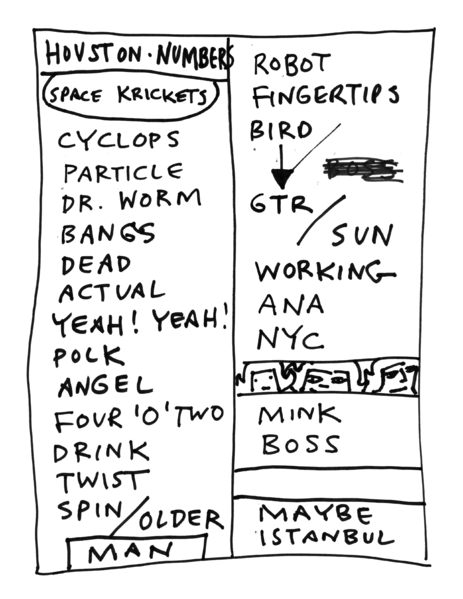 HOUSTON · NUMBERS
SPACE KRICKETS
CYCLOPS
PARTICLE
DR. WORM
BANGS
DEAD
ACTUAL
YEAH! YEAH!
POLK
ANGEL
FOUR 'O' TWO
DRINK
TWIST
SPIN/OLDER
MAN
ROBOT
FINGERTIPS
BIRD
GTR
SUN
WORKING
ANA
NYC
MINK
BOSS
MAYBE
ISTANBUL